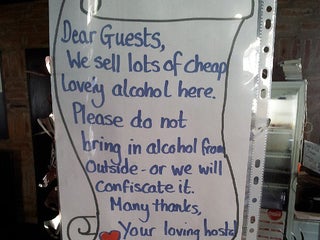 Dear Guests,
We sell lots of cheap
lovely alcohol here.
Please do not
bring in alcohol from
outside - or we will
confiscate it.
Many thanks,
Your loving hosts